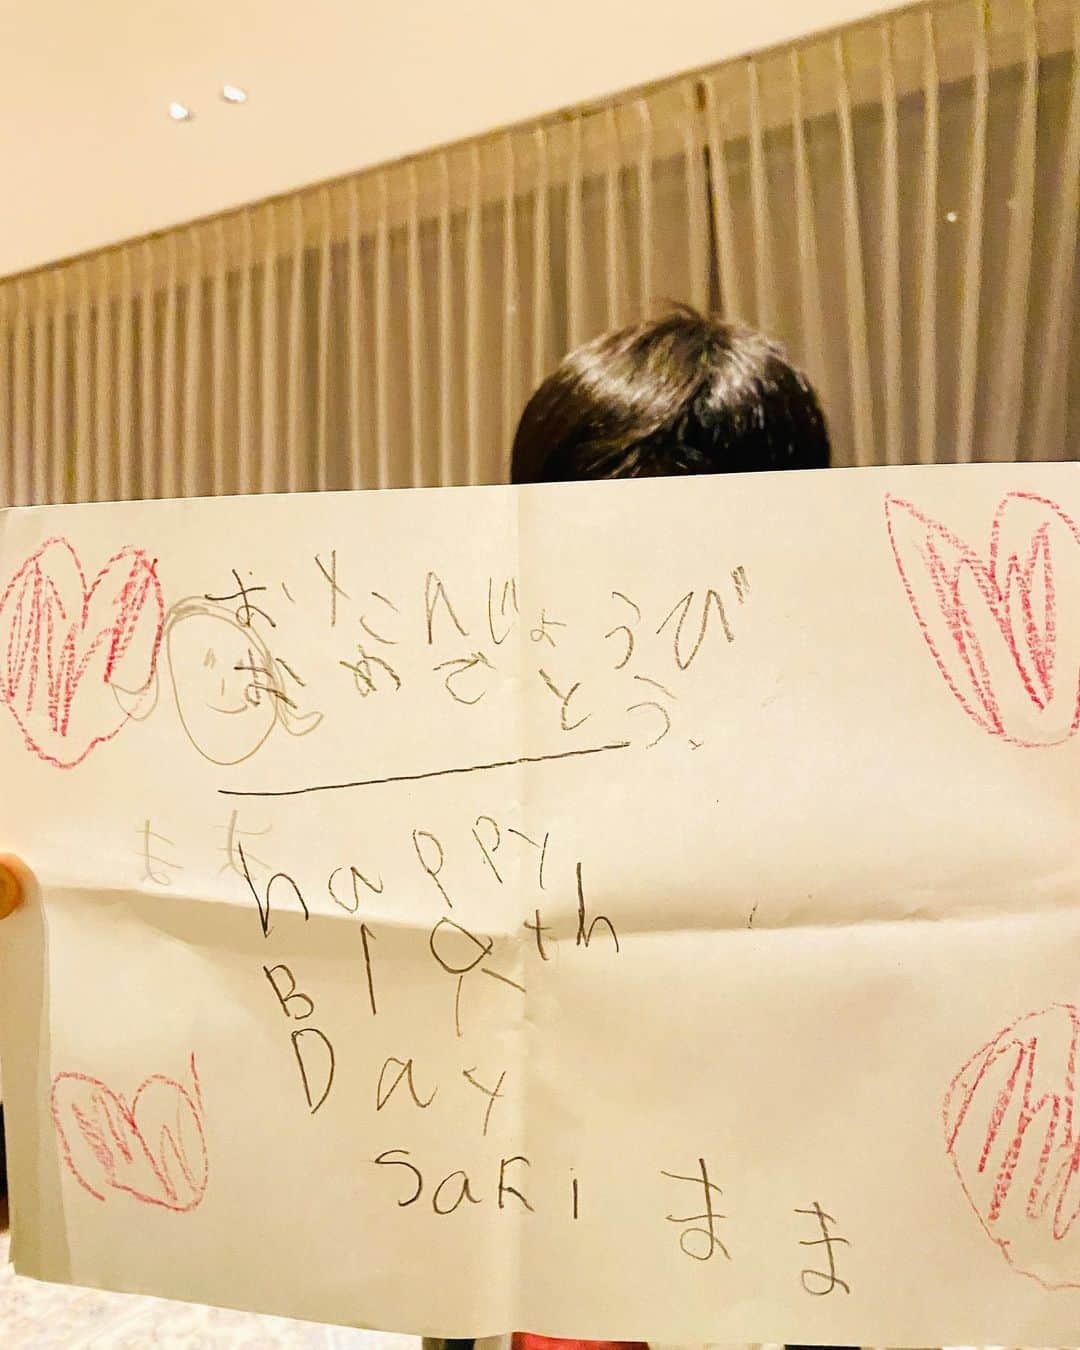 おたんじょうび
おめさとう、
happy
BIRth
Day
Saki まま